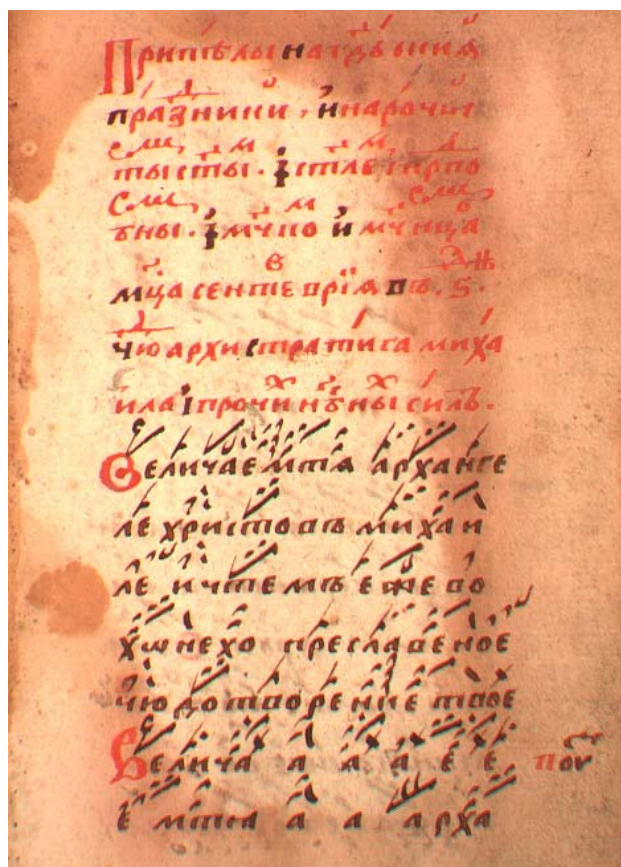 Припѣлы на гдьскиꙗ
праздники, и нарочи
тыѧ ст҃ыⷨ. і ст҃лемⷨ и прⷣпо
бныⷨ. і мч҃ко и мч҃нца
мц҃а сентевріꙗ въ. ѕ.
чю архистратига миха
ила і прочиⷯ нб҃ныⷯ силъ.
Величаемтѧ арханге
ле христовъ михаи
ле и чтемъ еже во
хѡнехо преславеное
чюдотворение твое
Велича а а а е е поу
е мтѧ а а арха